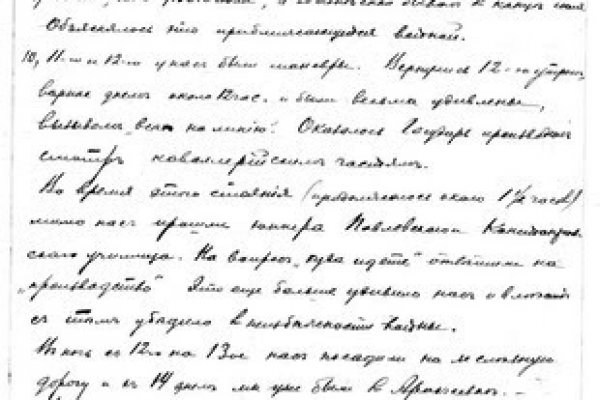 Объяснялось это приближающейся войной.
10, 11-го и 12-го у нас были маневры. Вернулись 12-го утром,
вернее днем около 12 час. и были весьма удивлены,
вызовом „всех на линию". Оказалось Государь производит
смотр кавалерийским частям.
Во время этого стояния (продолжалось около 1½ часов)
мимо нас прошли юнкера Павловского
ского училища. На вопрос „куда идете" ответили на
„производство" Это еще больше удивило нас и
с тем убедило в неизбежности войны.
В ночь с 12-го на 13-ое нас посадили на железную
дорогу и в 14 днем мы уже были в